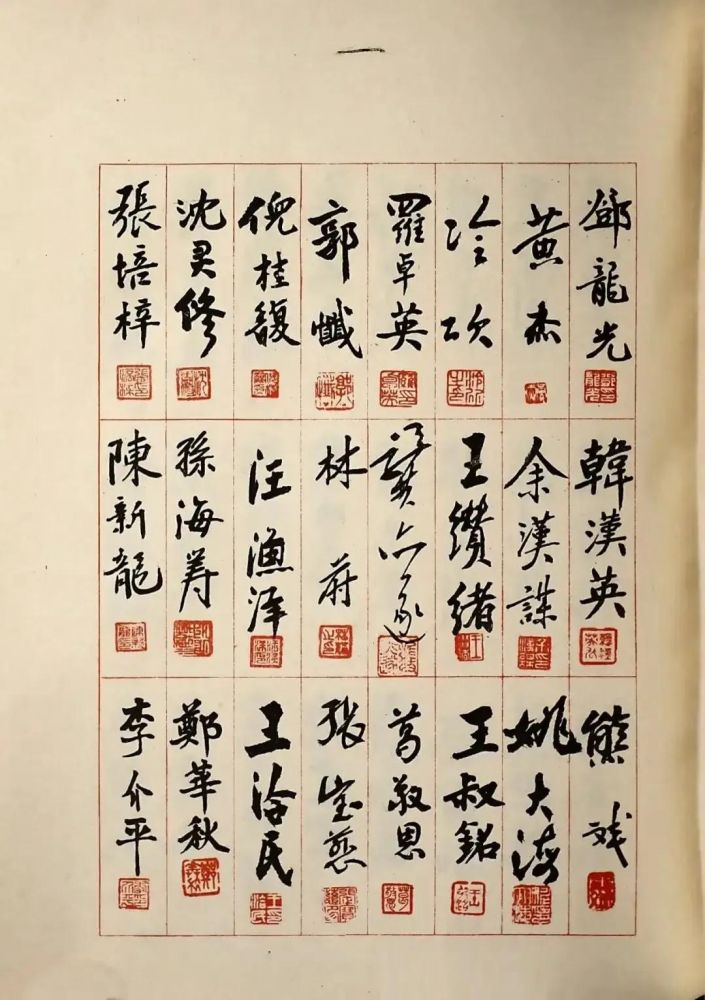 鄧龍光
黃杰
冷欣
羅卓英
郭懺
倪桂馥
沈君修
張培梓
韓漢英
余漢謀
王纘緒
龔亦遂
林蔚
汪漁洋
孫海壽
陳新龍
熊斌
姚大海
王叔銘
葛敬恩
張寶慈
王洽民
鄭華秋
李介平